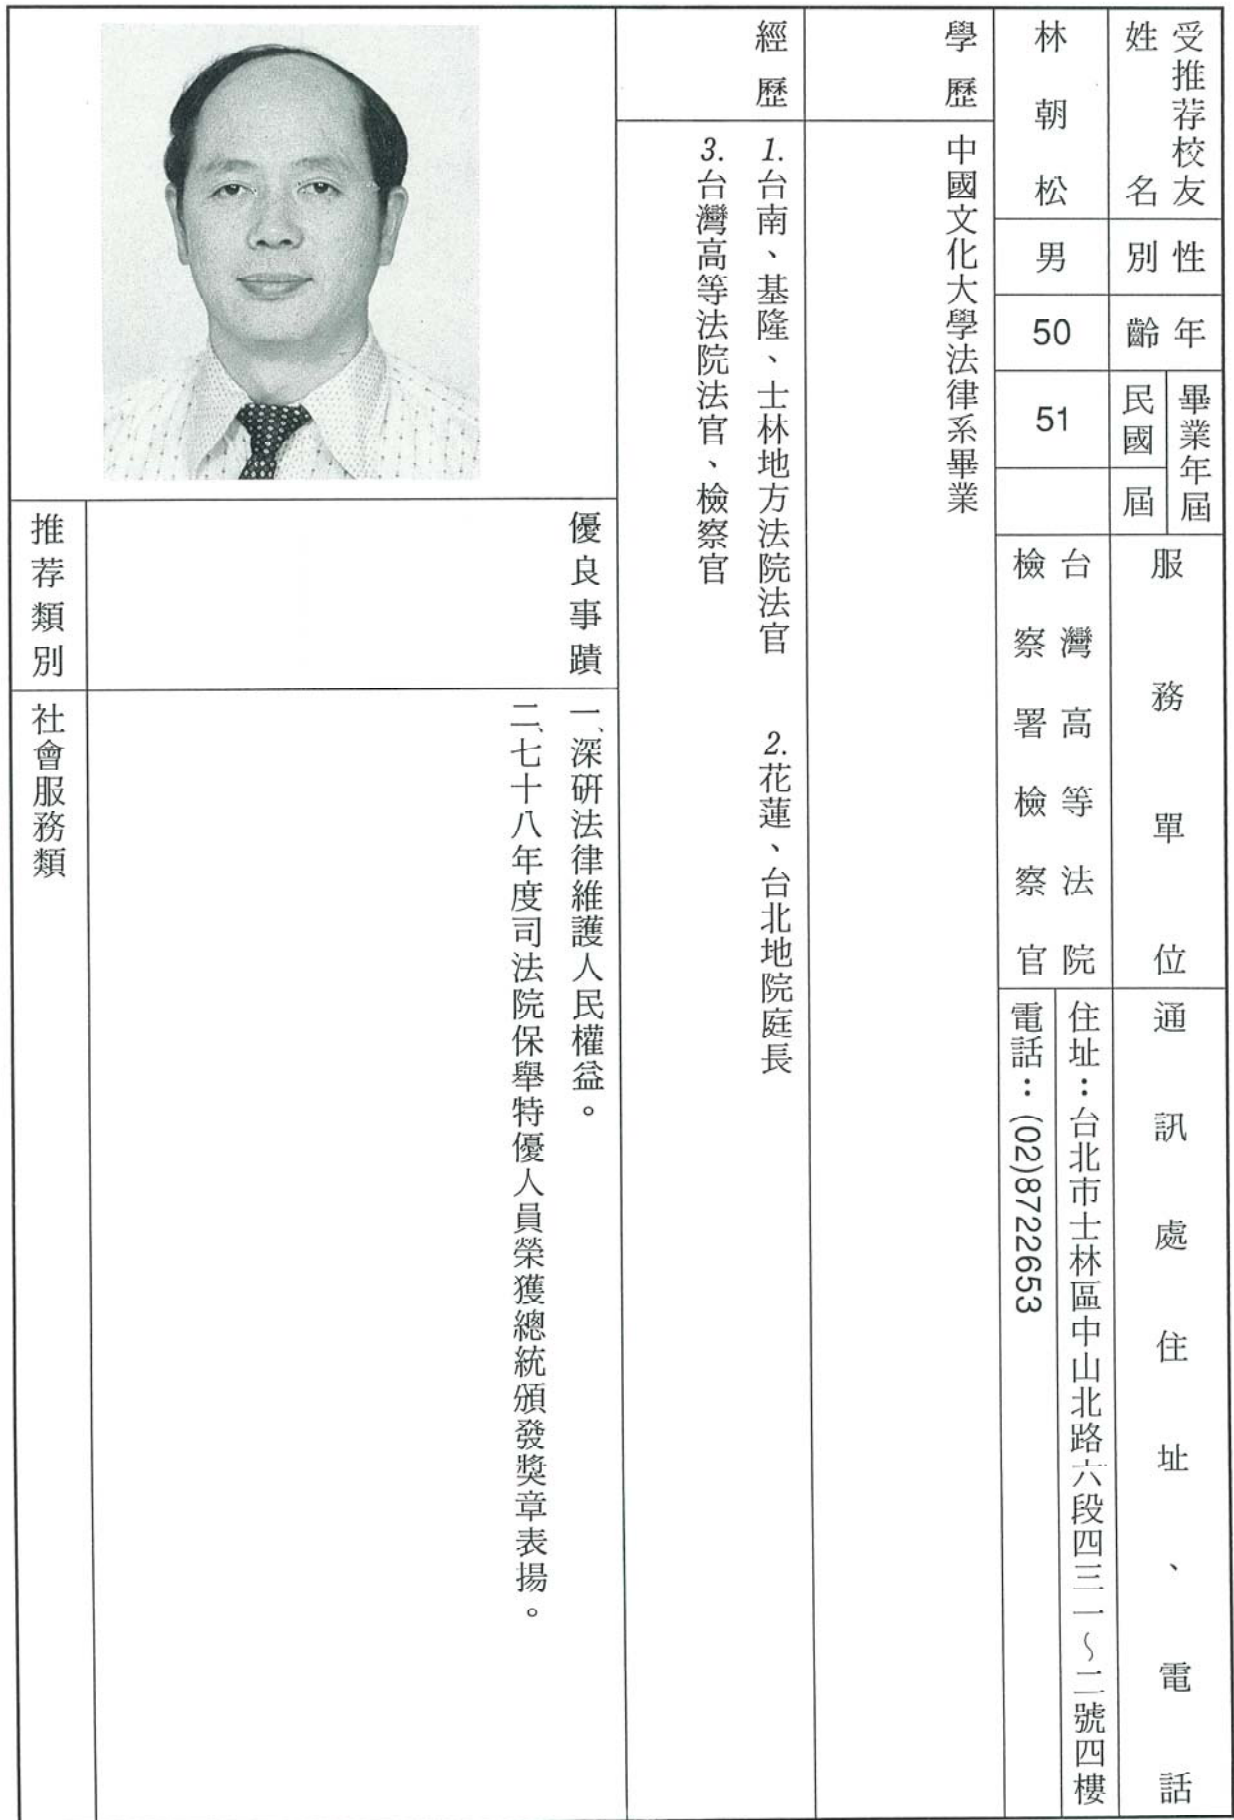 受推荐校友
姓名
林朝松
性別
男
年齡
50
畢業年屆
民國
51
屆
服務單位
台灣高等法院
檢察署檢察官
通訊處住址、電話
住址：台北市士林區中山北路六段四三一～二號四樓
電話：(02)8722653
學歷
中國文化大學法律系畢業
經歷
1.台南、基隆、士林地方法院法官
2.花蓮、台北地院庭長
3.台灣高等法院法官、檢察官
優良事蹟
一、深研法律維護人民權益。
二、七十八年度司法院保舉特優人員榮獲總統頒發獎章表揚。
推荐類別
社會服務類